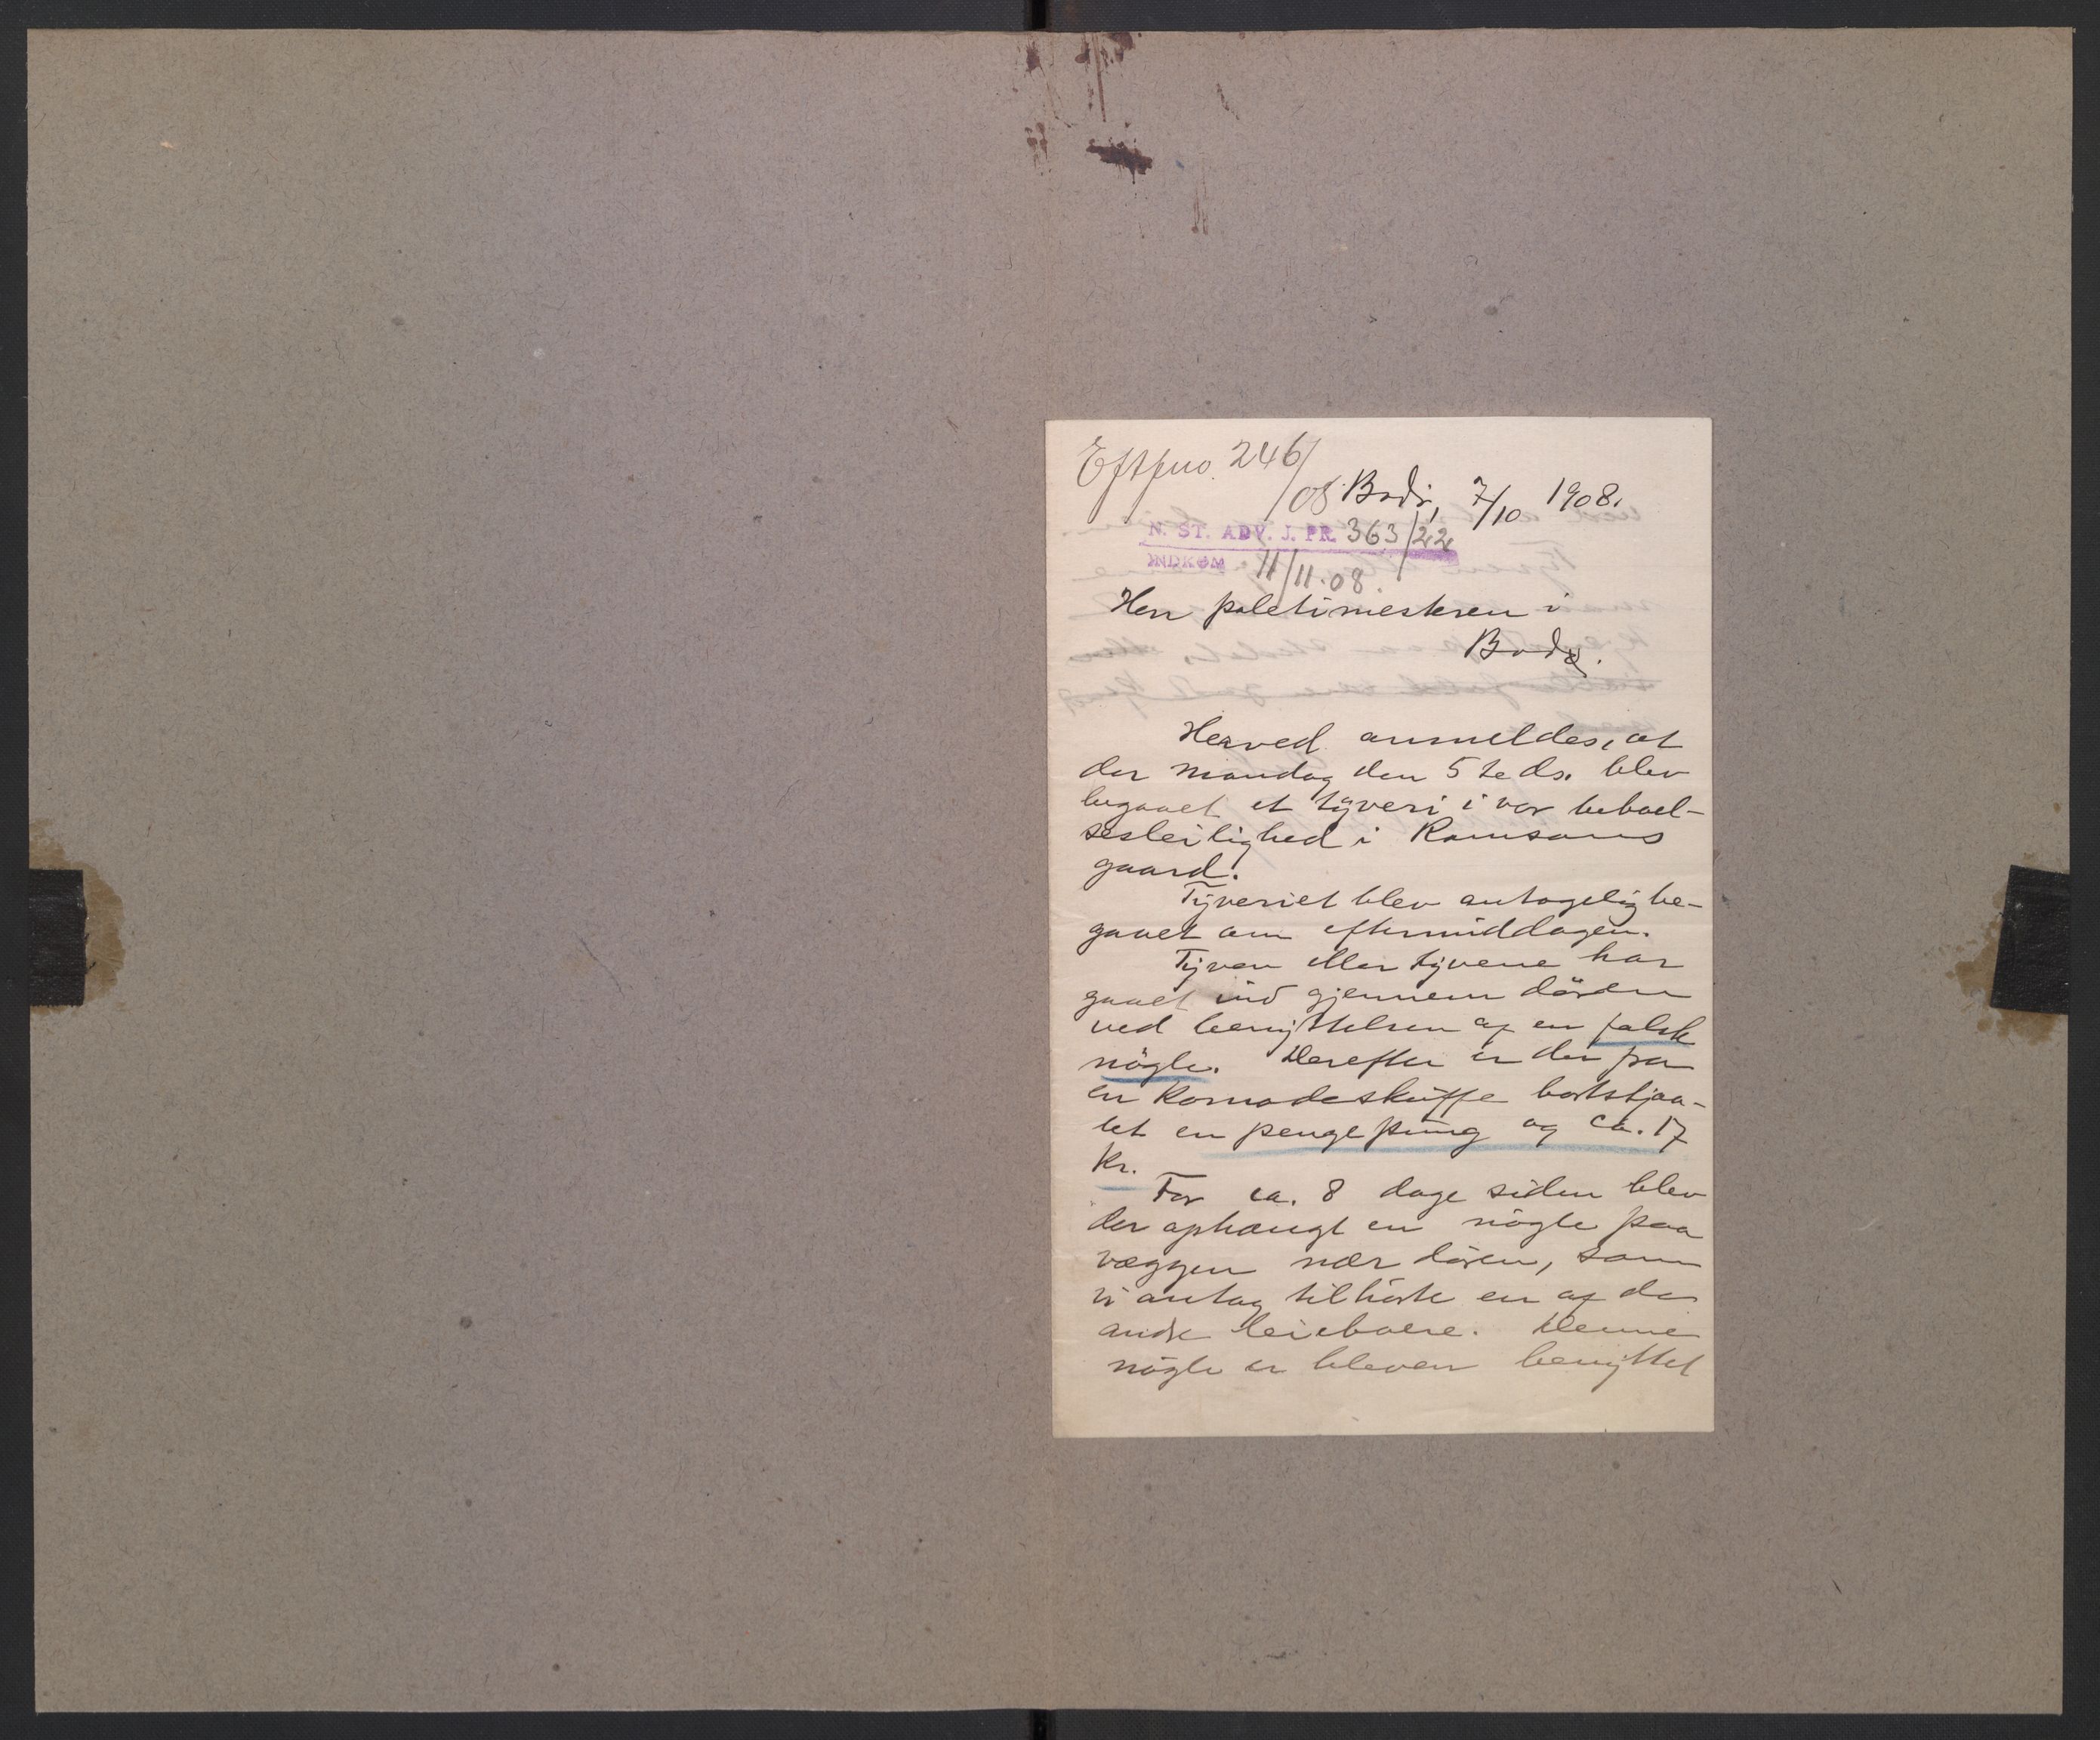 Eftfno. 246/08
Bodø, 7/10 1908.
N. ST. ADV. J. PR. 363/22
INDKOM 11/11.08.
Herr politimesteren i
Bodø.
Herved anmeldes, at
der mandag den 5te ds. blev
begaaet et tyveri i vor beboel-
sesleilighed i Ramsams
gaard.
Tyveriet blev antagelig be-
gaaet om eftermiddagen.
Tyven eller tyvene har
gaaet ind gjennem døren
ved benyttelsen af en falsk
nögle. Derefter er der fra
en Komodeskuffe bortstjaa-
let en pengepung og ca. 17
kr.
For ca. 8 dage siden blev
der ophængt en nögle paa
væggen nær døren, som
vi antog tilhörte en af de
andre leieboere. Denne
nögle er bleven benyttet